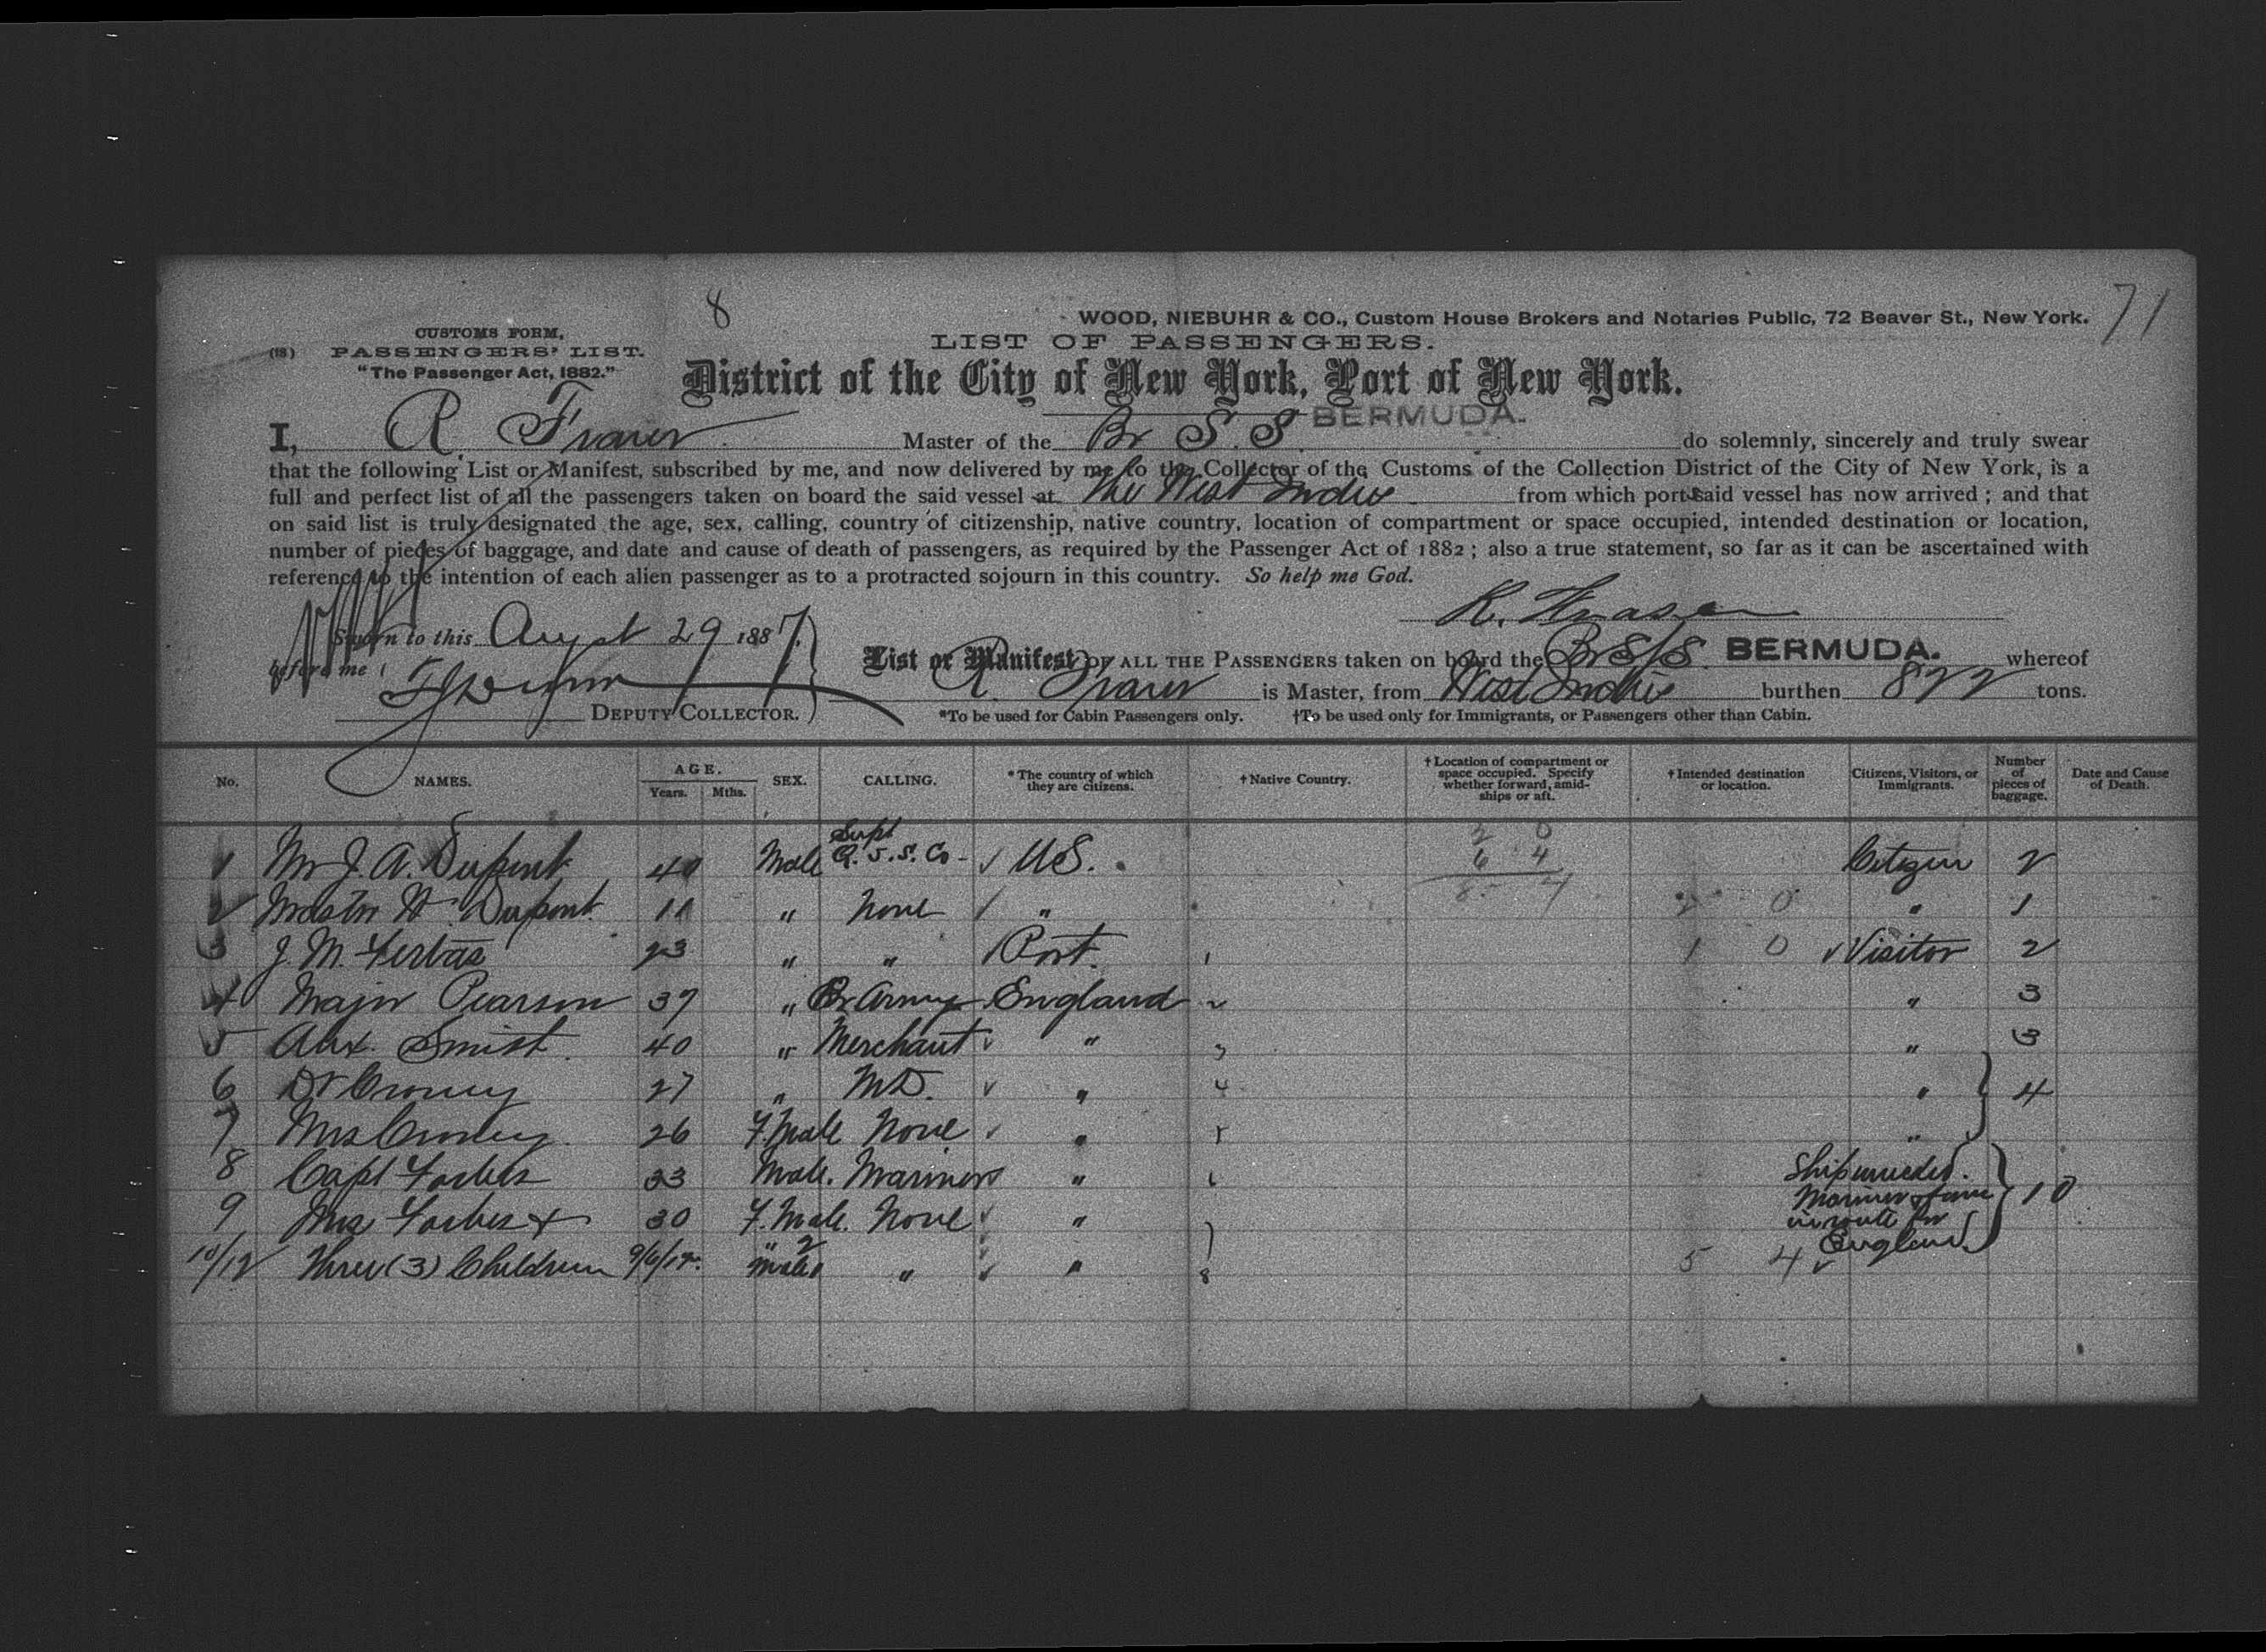 8
71
WOOD, NIEBUHR & CO., Custom House Brokers and Notaries Public, 72 Beaver St., New York.
CUSTOMS FORM,
(18) PASSENGERS' LIST.
"The Passenger Act, 1882."
LIST OF PASSENGERS.
District of the City of New York, Port of New York.
I, R. Fraser Master of the Br S. S. BERMUDA. do solemnly, sincerely and truly swear
that the following List or Manifest, subscribed by me, and now delivered by me to the Collector of the Customs of the Collection District of the City of New York, is a
full and perfect list of all the passengers taken on board the said vessel at the West Indies from which ports said vessel has now arrived ; and that
on said list is truly designated the age, sex, calling, country of citizenship, native country, location of compartment or space occupied, intended destination or location,
number of pieces of baggage, and date and cause of death of passengers, as required by the Passenger Act of 1882 ; also a true statement, so far as it can be ascertained with
reference to the intention of each alien passenger as to a protracted sojourn in this country. So help me God.
R. Fraser
Sworn to this August 29 1887.
before me
DEPUTY COLLECTOR.
List or Manifest OF ALL THE PASSENGERS taken on board the Br S/S. BERMUDA. whereof
R. Fraser is Master, from West Indies burthen 822 tons.
*To be used for Cabin Passengers only. †To be used only for Immigrants, or Passengers other than Cabin.
No. NAMES. AGE. Years. Mths. SEX. CALLING. * The country of which they are citizens. † Native Country. † Location of compartment or space occupied. Specify whether forward, amidships or aft. † Intended destination or location. Citizens, Visitors, or Immigrants. Number of pieces of baggage. Date and Cause of Death.
1 Mr J. A. Dupont 40 Male Supt Q. S. S. Co - U.S. 2 0 6 4 8 4 Citizen 2
2 Master H. Dupont 11 " None " 2 0 " 1
3 J. M. 23 " " Port. 1 1 0 Visitor 2
4 Major Pearson 37 " Br Army England 2 " 3
5 Alex. Smith 40 " Merchant " 3 " 3
6 Dr 27 " M.D. " 4 " 4
7 Mrs 26 F. Male None " 5 "
8 Capt Forbes 33 Male. Mariner " 6 Shipwrecked
9 Mrs Forbes + 30 F. Male. None " 7 Mariner & fam in route for 10
10/12 Three (3) Children 9/6/ " 2 males " " 8 5 4 England